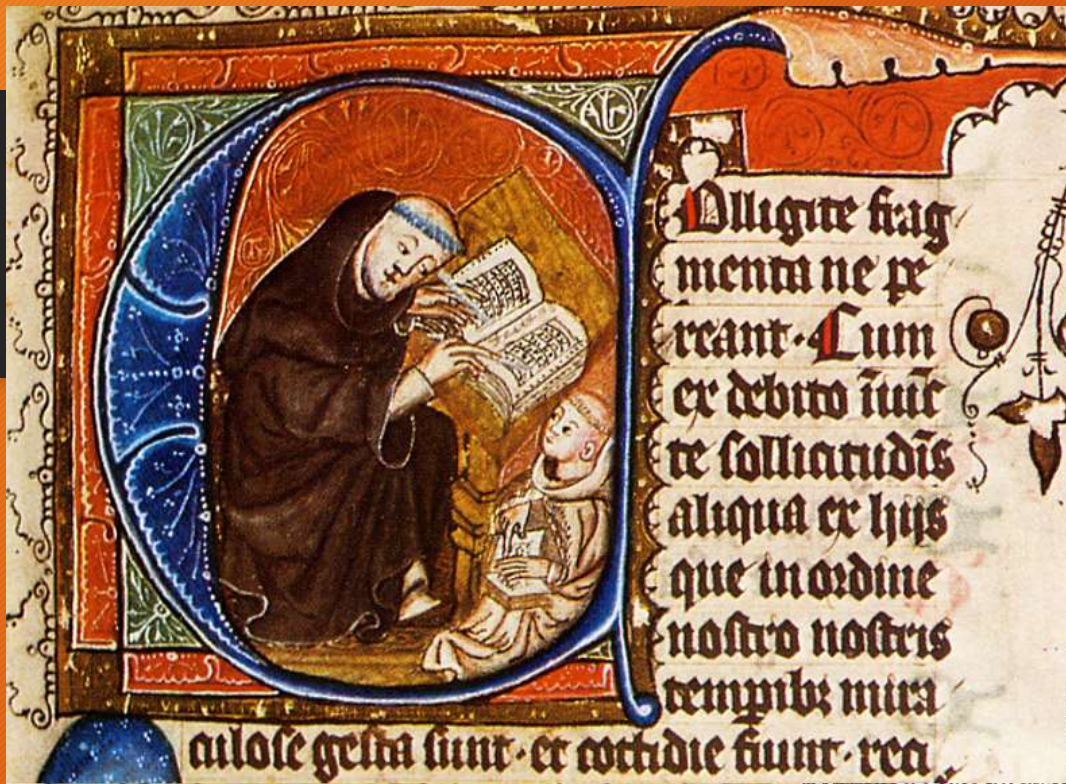 Olligite frag
menta ne pe
reant · Cum
ex debito īiūc
te sollicitudīs
aliqua ex hijs
que in ordine
nostro nostris
temꝑibꝫ mira
culose gesta sunt · et cottidie fiunt · reci